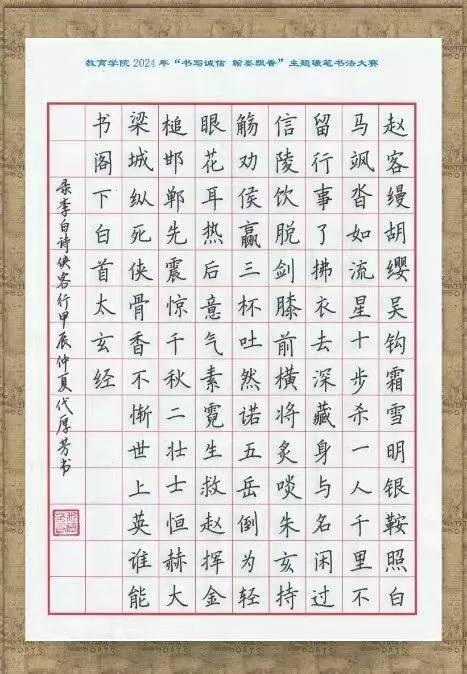 教育学院2024年“书写诚信 翰墨飘香”主题硬笔书法大赛
赵客缦胡缨吴钩霜雪明银鞍照白
马飒沓如流星十步杀一人千里不
留行事了拂衣去深藏身与名闲过
信陵饮脱剑膝前横将炙啖朱亥持
觞劝侯嬴三杯吐然诺五岳倒为轻
眼花耳热后意气素霓生救赵挥金
槌邯郸先震惊千秋二壮士烜赫大
梁城纵死侠骨香不惭世上英谁能
书阁下白首太玄经
录李白诗侠客行甲辰仲夏代厚芳书